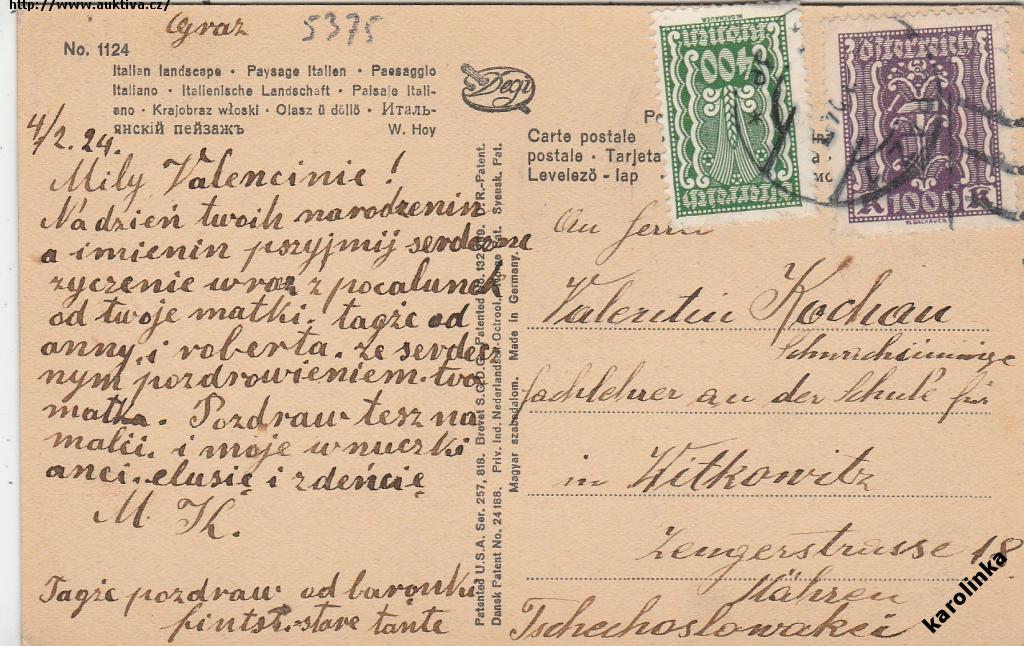 http://www.auktiva.cz/
Graz
5375
No. 1124
Italian landscape · Paysage Italien · Paesaggio
Italiano · Italienische Landschaft · Paisaje Itali-
ano · Krajobraz włoski · Olasz ü döllö · Италь-
янскій пейзажъ W. Hoy
Degi
4/2. 24.
Mily Valencinie!
Na dzień twoih narodzenin
a imienin pszyjmij serdeczne
zyczenie wraz z pocalunek
od twoje matki. tagże od
anny. i roberta. ze serdecz
nym pozdrowieniem. two
matka. Pozdraw tesz na
malci. i moje wnuczki
anci. elusię i zdeńcię
M. K.
Tagże pozdraw od baronki
stare tante
Patented U.S.A. Ser. 257, 818. Brevet S.G.D.G. Patented No. 132 D.R.-Patent.
Dansk Patent No. 24 188. Priv. Ind. Nederlandsch-Octrooi. Pat. Svensk. Pat.
Magyar szabadalom. Made in Germany.
Po
Carte postale
postale · Tarjeta
Levelező - lap
400
Österreich
Österreich
K 1000 K
An Herrn
Valentin Kochan
Schwachsinnige
Fachlehrer an der Schule für
in Witkowitz
Zengerstrasse 18
Mähren
Tschechoslowakei
karolinka